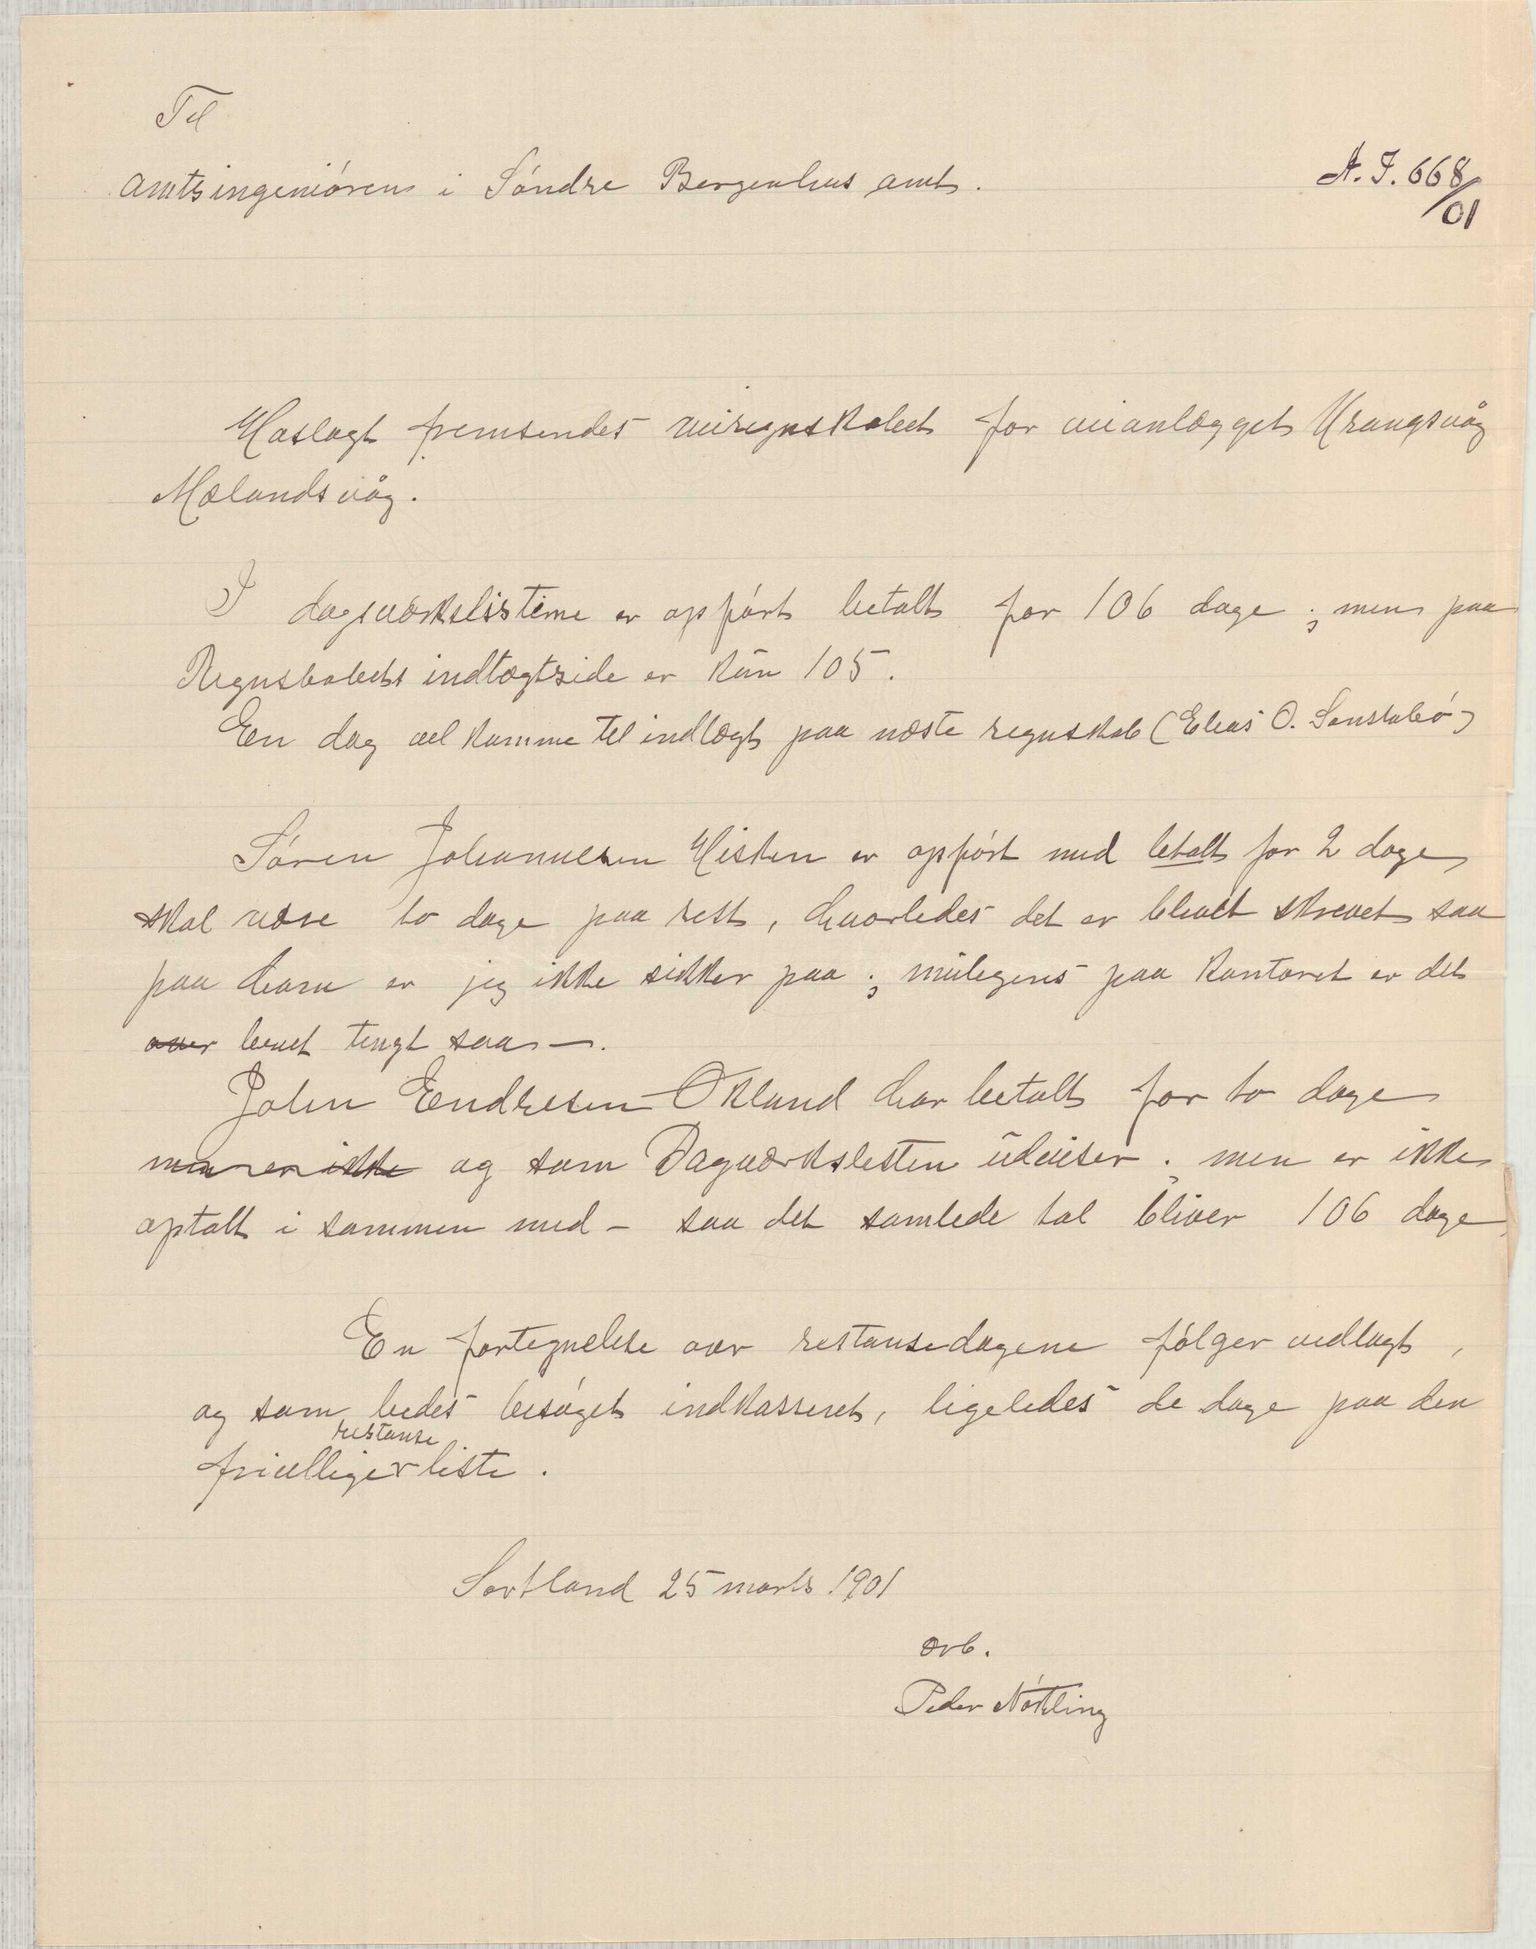 Til
Amtsingeniören i Söndre Bergenhus amt.
A. I. 668/01
Hoslagt fremsendes veiregnskabet for veianlægget Urangsvåg
Mælandsvåg.
I dagsværkslisterne er opfört betalt for 106 dage ; men paa
Regnskabets indtægtside er kūn 105.
En dag vil komme til indtægt paa næste regnskab (Elias O.
Sören Johannesen Hisken er opfört med betalt for 2 dage,
skal være to dage paa rest, hvorledes det er blevet skrevet saa
paa ham er jeg ikke sikker paa ; mūligens paa kontoret er det
over bevet saa —.
John Endresen Økland har betalt for to dage
men er ikke og som Dagværkslisten ūdviser ; men er ikke
optalt i sammen med – saa det samlede tal bliver 106 dage,
En fortegnelse over restansedagene fölger vedlagt,
og som bedes besöget indkasseret, ligeledes de dage paa den
restanse
frivilliger liste.
Sortland 25 marts 1901
ærb.
Peder Nökling